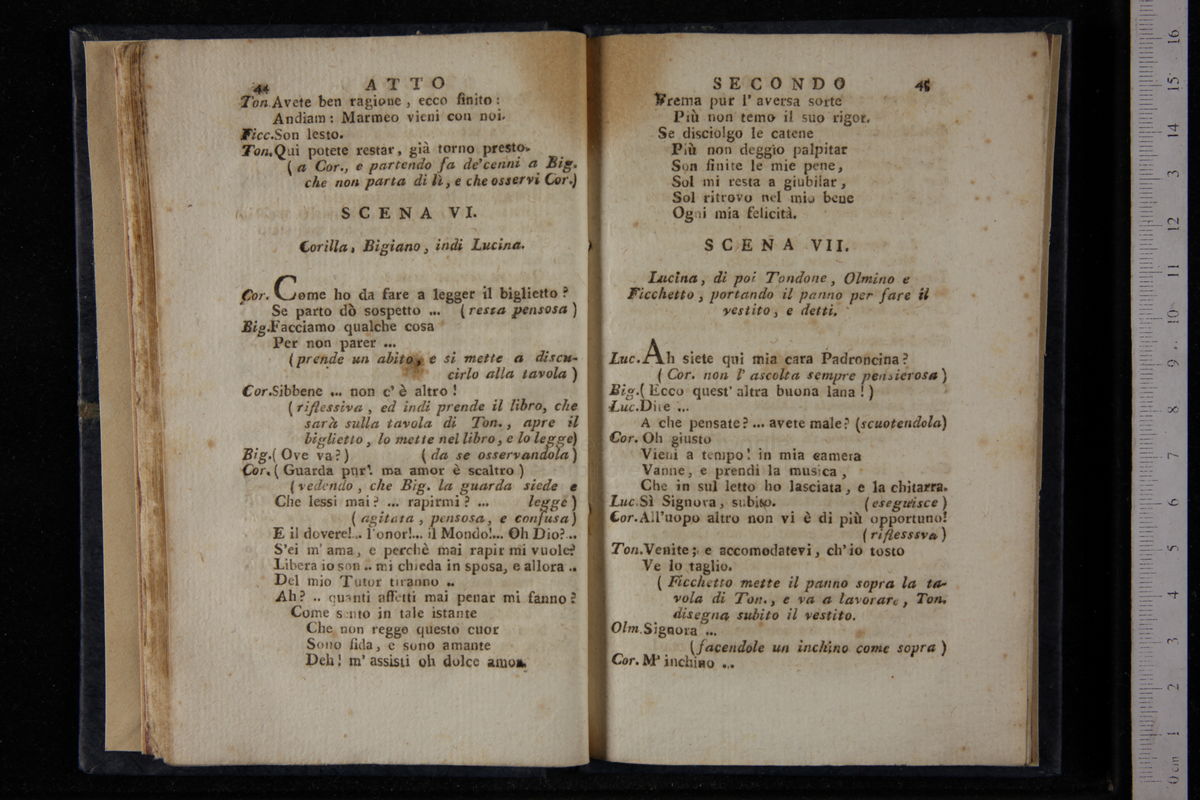 44 ATTO
Ton. Avete ben ragione, ecco finito:
Andiam: Marmeo vieni con noi.
Ficc. Son lesto.
Ton. Qui potete restar, già torno presto.
( a Cor., e partendo fa de' cenni a Big.
che non parta di lì, e che osservi Cor.)
SCENA VI.
Corilla, Bigiano, indi Lucina.
Cor. Come ho da fare a legger il biglietto?
Se parto dò sospetto ... (resta pensosa)
Big. Facciamo qualche cosa
Per non parer ...
(prende un abito, e si mette a discu-
cirlo alla tavola)
Cor. Sibbene ... non c'è altro!
(riflessiva, ed indi prende il libro, che
sarà sulla tavola di Ton., apre il
biglietto, lo mette nel libro, e lo legge)
Big. (Ove va?) (da se osservandola)
Cor. (Guarda pur'. ma amor è scaltro)
(vedendo, che Big. la guarda siede e
Che lessi mai? ... rapirmi? ... legge)
(agitata, pensosa, e confusa)
E il dovere!.. l'onor!... il Mondo!... Oh Dio?..
S'ei m'ama, e perchè mai rapir mi vuole?
Libera io son .. mi chieda in sposa, e allora ..
Del mio Tutor tiranno ..
Ah? .. quanti affetti mai penar mi fanno?
Come sento in tale istante
Che non reggo questo cuor
Sono fida, e sono amante
Deh! m'assisti oh dolce amor.
SECONDO 45
Frema pur l'aversa sorte
Più non temo il suo rigor.
Se disciolgo le catene
Più non deggio palpitar
Son finite le mie pene,
Sol mi resta a giubilar,
Sol ritrovo nel mio bene
Ogni mia felicità.
SCENA VII.
Lucina, di poi Tondone, Olmino e
Ficchetto, portando il panno per fare il
vestito, e detti.
Luc. Ah siete qui mia cara Padroncina?
(Cor. non l'ascolta sempre pensierosa)
Big. (Ecco quest'altra buona lana!)
Luc. Dite ...
A che pensate? ... avete male? (scuotendola)
Cor. Oh giusto
Vieni a tempo! in mia camera
Vanne, e prendi la musica,
Che in sul letto ho lasciata, e la chitarra.
Luc. Sì Signora, subito. (eseguisce)
Cor. All'uopo altro non vi è di più opportuno!
(riflesssva)
Ton. Venite; e accomodatevi, ch'io tosto
Ve lo taglio.
(Ficchetto mette il panno sopra la ta-
vola di Ton., e va a lavorare, Ton.
disegna subito il vestito.
Olm. Signora ...
(facendole un inchino come sopra)
Cor. M'inchino ...
0 cm 1 2 3 4 5 6 7 8 9 10 11 12 13 14 15 16